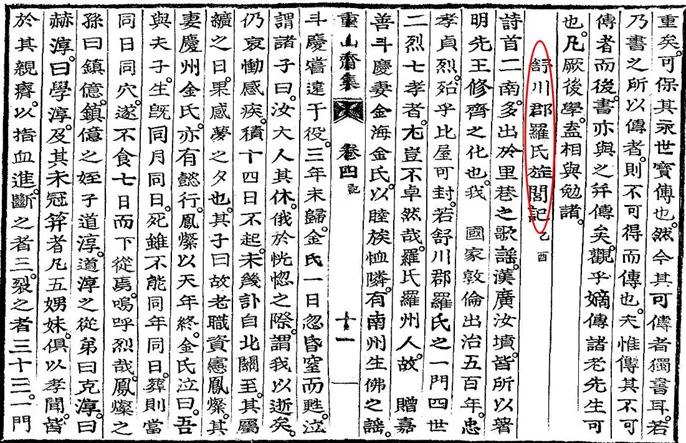 重矣。可保其永世寶傳也。然今其可傳者獨書耳。若
乃書之所以傳者。則不可得而傳也。夫惟傳其不可
傳者而後。書亦與之幷傳矣。觀乎嫡傳諸老先生可
也。凡厥後學。盍相與勉諸。
舒川郡羅氏旌閭記 乙酉
詩首二南。多出於里巷之歌謠。漢廣汝墳。皆所以著
明先王修齊之化也。我 國家敦倫出治五百年。忠
孝貞烈。殆乎比屋可封。若舒川郡羅氏之一門四世
二烈七孝者。尤豈不卓然哉。羅氏羅州人。故 贈嘉
善斗慶妻金海金氏。以睦族恤隣。有南州生佛之謠。
重山齋集 卷四 記 十一
斗慶嘗遠于役。三年未歸。金氏一日忽昏窒而甦。泣
謂諸子曰。汝大人其休。俄於恍惚之際。謂我以逝矣。
仍哀慟感疾。積十四日不起。未幾訃自北關至。其屬
纊之日。果感夢之夕也。其子曰故老職資憲鳳燦。其
妻慶州金氏亦有懿行。鳳燦以天年終。金氏泣曰。吾
與夫子。生旣同月同日。死雖不能同年同日。葬則當
同日同穴。遂不食七日而下從焉。嗚呼烈哉。鳳燦之
孫曰鎮億。鎮億之姪子道淳。道淳之從弟曰克淳。曰
赫淳。曰學淳。及其未冠筓者凡五娚妹。俱以孝聞。
於其親癠。以指血進。斷之者二。裂之者三十三。一門